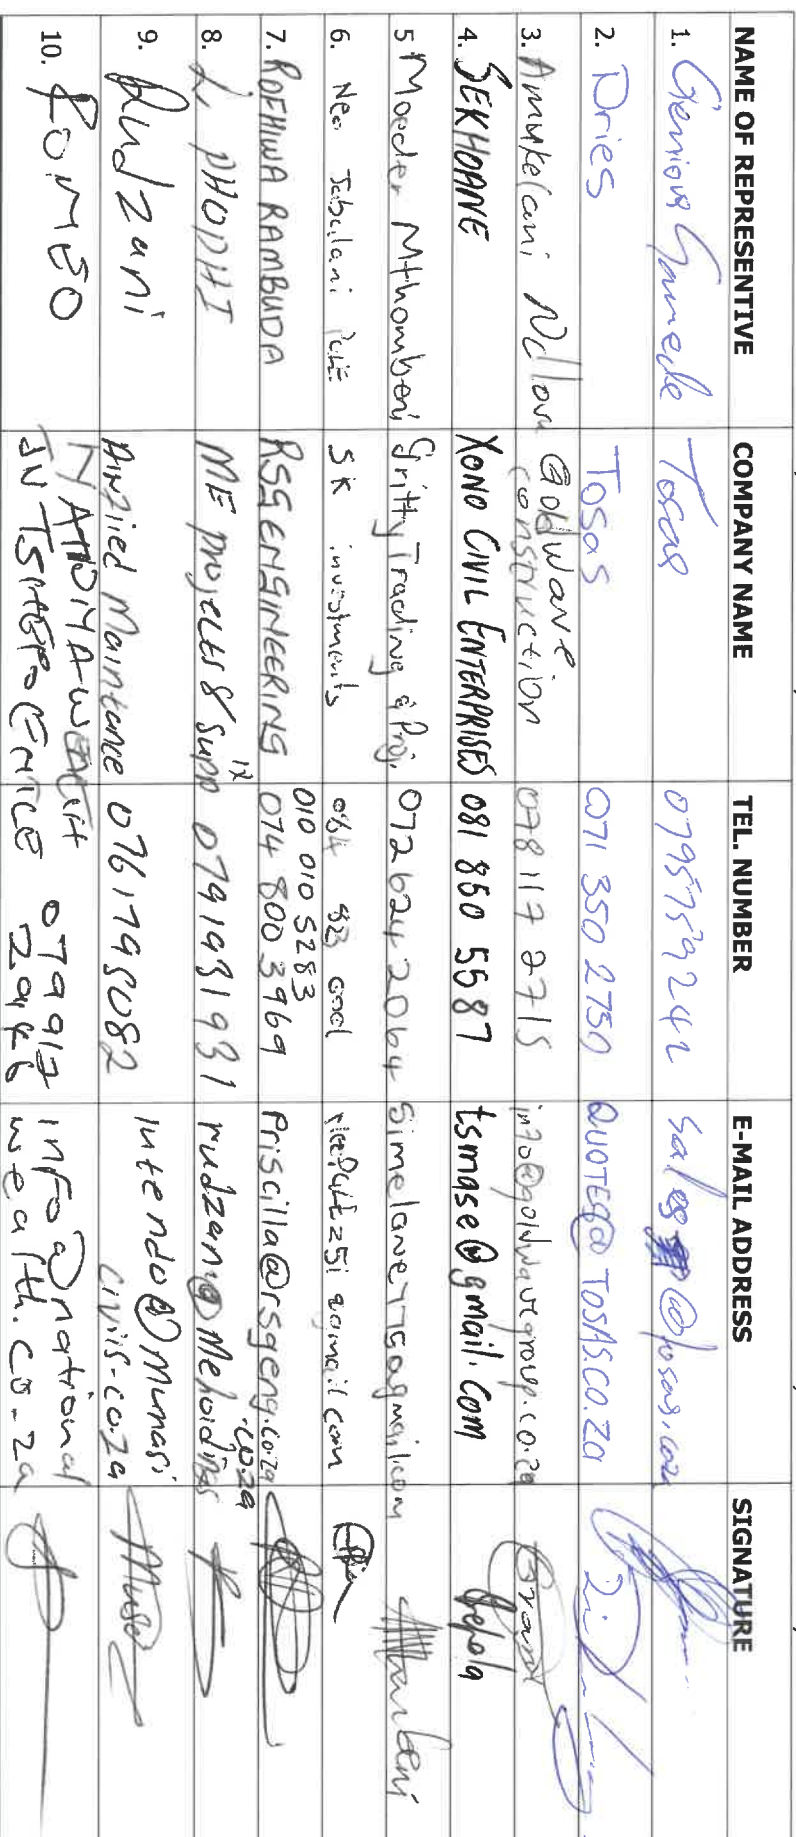 NAME OF REPRESENTIVE COMPANY NAME TEL. NUMBER E-MAIL ADDRESS SIGNATURE
1. Genious Gamede Tosas 0795759242 sales @tosas.co.za
2. Dries Tosas 0071 350 2750 QUOTES@TOSAS.CO.Za
3. Amukelani Ndlovu Goldwave 078 117 2715 info@goldwavegroup.co.za
construction
4. SEKHOANE XONO CIVIL ENTERPRISES 081 850 5587 tsmase@gmail.com Sepola
5 Moeder Mthombeni Gritty Trading & Proj. 072 624 2064 Simelane775@gmail.com Mthombeni
6. Neo Jabulani SK investments 064 823
010 010 5283
7. ROFHIWA RAMBUDA RSG ENGINEERING 074 800 3969 Priscilla@rsgeng.co.za
8. L. PHOPHI ME projects & Supp 0791931931 rudzani@Meholdings
.co.za
9. Rudzani Anzied Maintance 0761795082 Intendo@Munasi
civils.co.za
10. ROMEO N ATIONAL WEALTH 079 917 info@national
JV TSHEPO ENTLE 2946 wealth.co.za